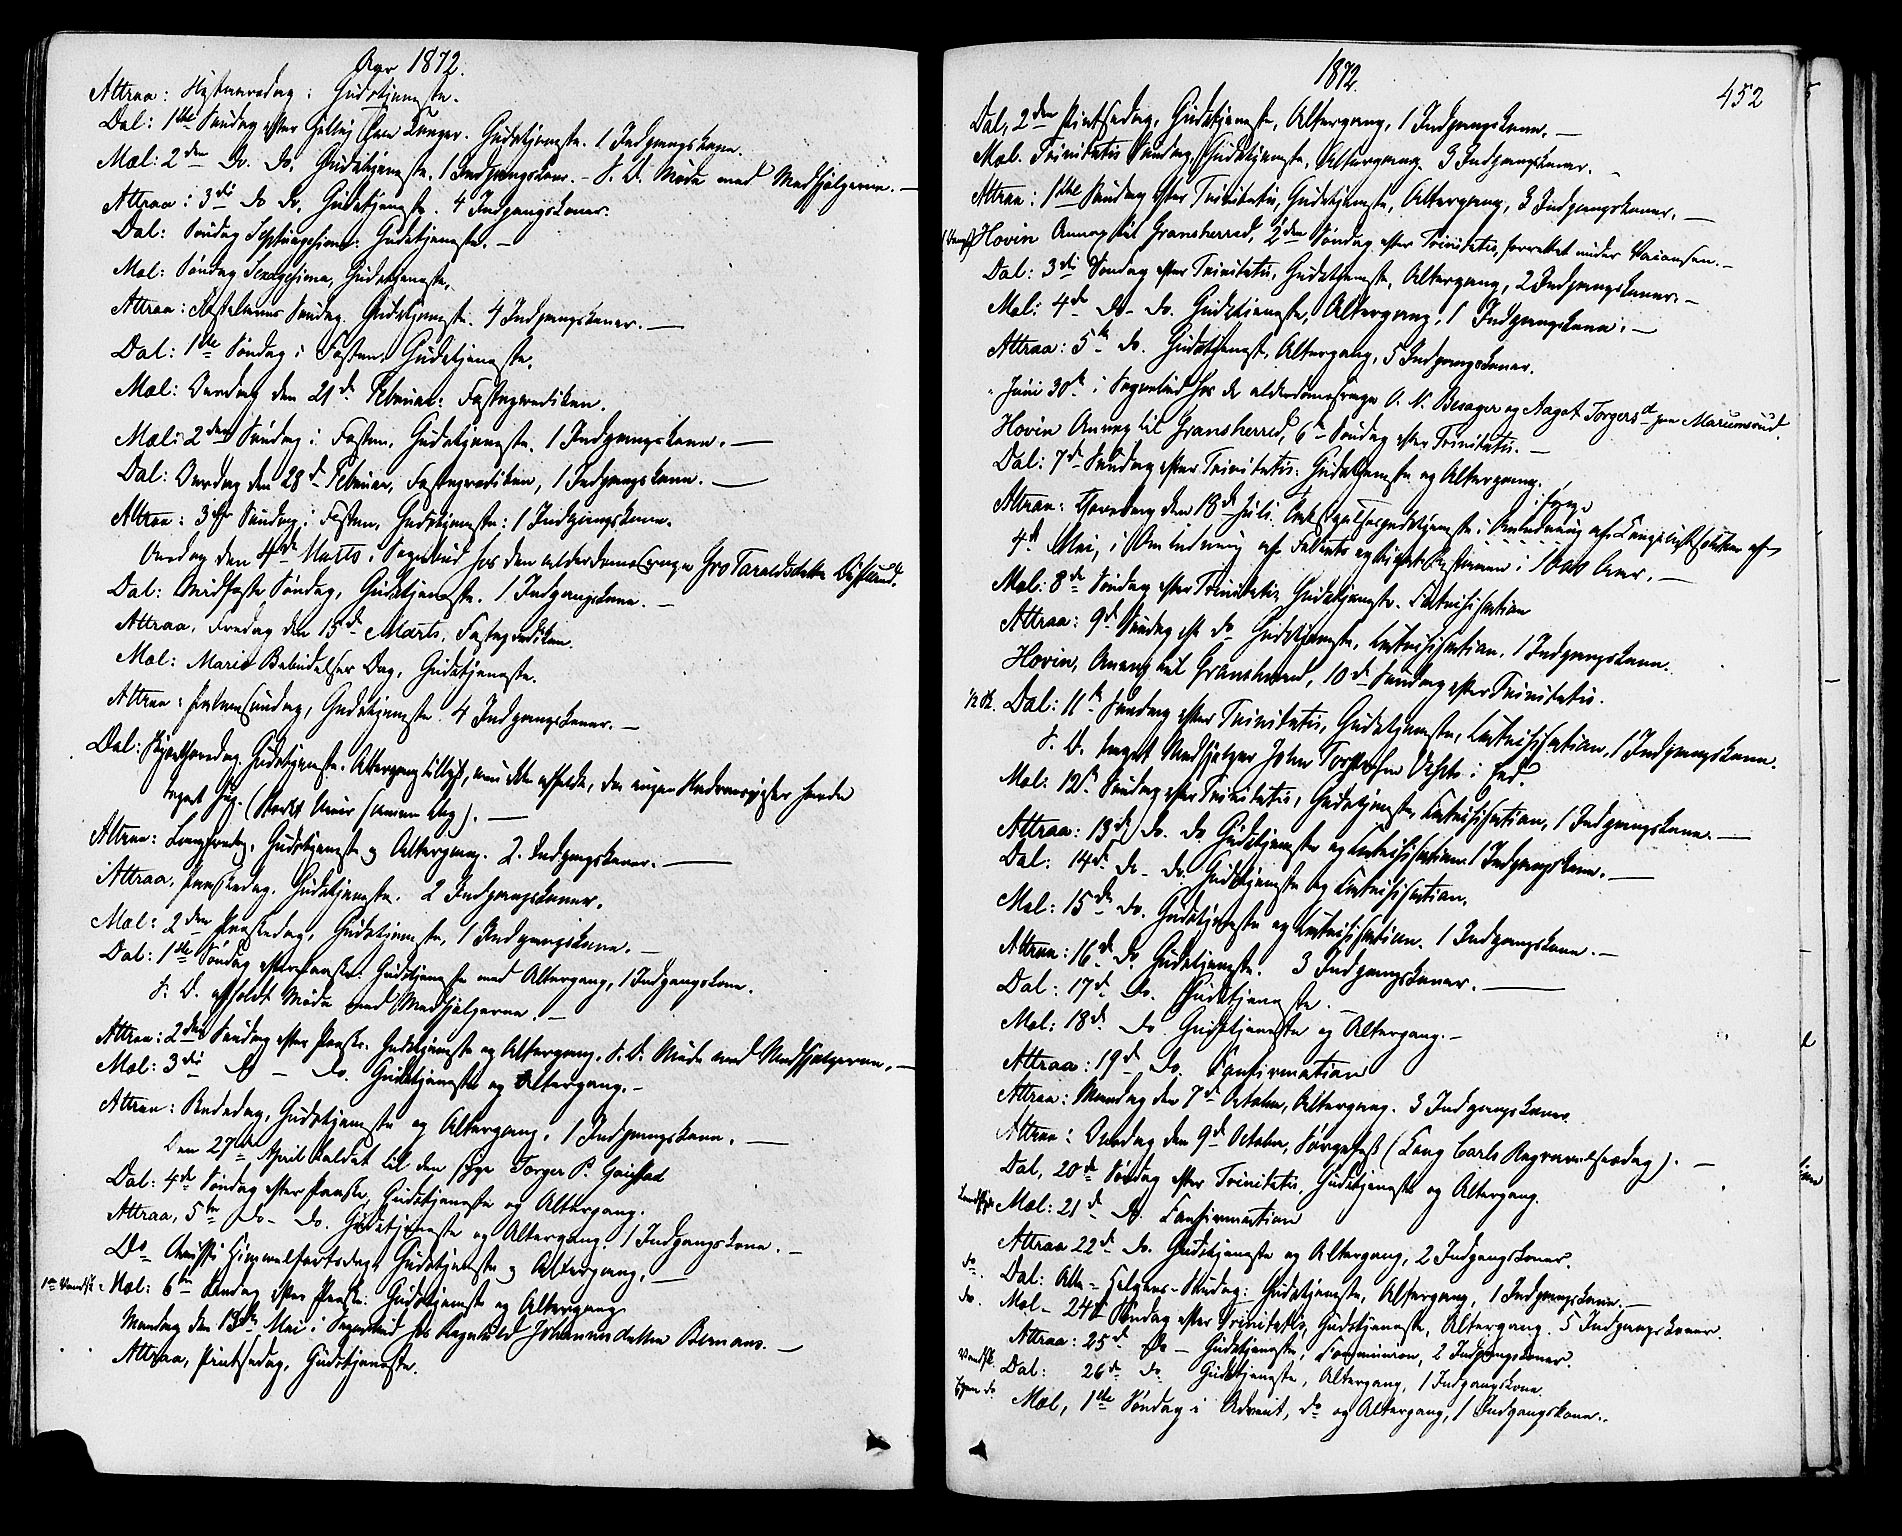 Aar 1872.
Attraa: Nytaarsdag: Gudstjeneste.
Dal: 1ste Søndag efter Hellig tre Konger. Gudstjeneste. 1 Indgangskone.
Mæl: 2den Do. Do. Gudstjeneste, 1 Indgangskone. – S. D. Møde med Medhjælperne. –
Attraa: 3die Do Do. Gudstjeneste. 4 Indgangskoner.
Dal: Søndag Septuagesima. Gudstjeneste. –
Mæl: Søndag Sexagesima, Gudstjeneste,
Attraa: Fastelavns Søndag. Gudstjeneste. 4 Indgangskoner. –
Dal: 1ste Søndag i Fasten, Gudstjeneste.
Mæl: Onsdag den 21de Februar: Fasteprædiken.
Mæl: 2den Søndag i Fasten, Gudstjeneste. 1 Indgangskone. –
Dal: Onsdag den 28de Februar, Fasteprædiken, 1 Indgangskone. –
Attraa: 3die Søndag i Fasten, Gudstjeneste: 1 Indgangskone.
Onsdag den 4de Marts i Sognebud hos den alderdomssvage Gro Taraldsdatter
Dal: Midfaste Søndag, Gudstjeneste. 1 Indgangskone. –
Attraa, Fredag den 15de Marts, Fasteprædiken.
Mæl: Mariæ Bebudelses Dag, Gudstjeneste.
Attraa: Palmesøndag, Gudstjeneste. 4 Indgangskoner. –
Dal: Skjærthorsdag. Gudstjeneste. Altergang tillyst, men ikke afholdt, da ingen Nadvergjester havde
taget sig. (Stærkt Uveir samme Dag). –
Attraa: Langfredag, Gudstjeneste og Altergang. 2. Indgangskoner. –
Attraa, Paaskedag. Gudstjeneste. 2 Indgangskoner.
Mæl: 2den Paaskedag, Gudstjeneste, 1 Indgangskone. –
Dal: 1ste Søndag efter Paaske: Gudstjeneste med Altergang, 1 Indgangskone.
S. D. afholdt Møde med Medhjælperne. –
Attraa: 2den Søndag efter Paaske. Gudstjeneste og Altergang. S. D. Møde med Medhjælperne. –
Mæl: 3die Do – Do. Gudstjeneste og Altergang. –
Attraa: Bededag, Gudstjeneste og Altergang. 1 Indgangskone. –
Den 27de April kaldet til den syge Torger P. Gaistad
Dal: 4de Søndag efter Paaske, Gudstjeneste og Altergang.
Attraa, 5te Do – Do. Gudstjeneste og Altergang. 1 Indgangskone. –
Do Christi Himmelfartsdag, Gudstjeneste og Altergang. –
Mæl: 6te Søndag efter Paaske: Gudstjeneste og Altergang
Mandag den 13de Mai i Sognebud hos Ragnhild Johannisdatter Bernaas. –
Attraa, Pintsedag, Gudstjeneste.
1872.
452
Dal, 2den Pintsedag, Gudstjeneste, Altergang, 1 Indgangskone. –
Mæl. Trinitatis Søndag, Gudstjeneste, Altergang. 3 Indgangskoner. –
Attraa: 1ste Søndag efter Trinitatis, Gudstjeneste, Altergang, 3 Indgangskoner. –
Hovin Annex til Gransherred, 2den Søndag efter Trinitatis, forrettet under Vacansen. –
Dal: 3die Søndag efter Trinitatis, Gudstjeneste, Altergang, 2 Indgangskoner. –
Mæl: 4de Do – Do. Gudstjeneste, Altergang, 1 Indgangskone. –
Attraa: 5te Do. Gudstjeneste, Altergang, 5 Indgangskoner.
Juni 30te i Sognebud hos de alderdomssvage O. N. Besager og Aagot Torgersd paa Marumsrud.
Hovin Annex til Gransherred, 6te Søndag efter Trinitatis. –
Dal: 7de Søndag efter Trinitatis. Gudstjeneste og Altergang.
Attraa: Thorsdag den 18de Juli. Takksigelsesgudstjeneste i Anledning af Kongelig Resolution af
4de Mai, i Anledning af Folkets og Rigets Bestaaen i 1000 Aar. –
Mæl: 8de Søndag efter Trinitatis, Gudstjeneste. Catechisation
Attraa: 9de Søndag eft. Do Gudstjeneste, Catechisation. 1 Indgangskone.
Hovin, Annex til Gransherred, 10de Søndag efter Trinitatis.
Dal: 11te Søndag efter Trinitatis, Gudstjeneste, Catechisation, 1 Indgangskone.
S. D. taget Medhjælper John Torstensen i Eed.
Mæl: 12te Søndag efter Trinitatis, Gudstjeneste, Catechisation, 1 Indgangskone. –
Attraa: 13de Do. Do Gudstjeneste og Catechisation 1 Indgangskone. –
Dal: 14de Do – Do. Gudstjeneste og Catechisation.
Mæl: 15de Do. Gudstjeneste og Catechisation. 1 Indgangskone. –
Attraa: 16de Do. Gudstjeneste. 3 Indgangskoner. –
Dal: 17de Do. Gudstjeneste. –
Mæl: 18de Do Gudstjeneste og Altergang. –
Attraa: 19de Do. Confirmation
Attraa: Mandag den 7de October, Altergang. 3 Indgangskoner
Attraa: Onsdag den 9de October, Sørgefest (Kong Carls Begravelsesdag). –
Dal, 20de Søndag efter Trinitatis, Gudstjeneste og Altergang.
Mæl: 21de Do. Confirmation
Attraa 22de Do. Gudstjeneste og Altergang, 2 Indgangskoner.
Do. Dal: Alle-Helgens-Søndag: Gudstjeneste, Altergang, 1 Indgangskone. –
Do. Mæl – 24de Søndag efter Trinitatis, Gudstjeneste, Altergang. 5 Indgangskoner.
Attraa: 25de Do – Gudstjeneste, Communion, 2 Indgangskoner.
Dal: 26de Do Gudstjeneste, Altergang, 1 Indgangskone.
Mæl, 1ste Søndag i Advent, Do og Altergang, 1 Indgangskone.